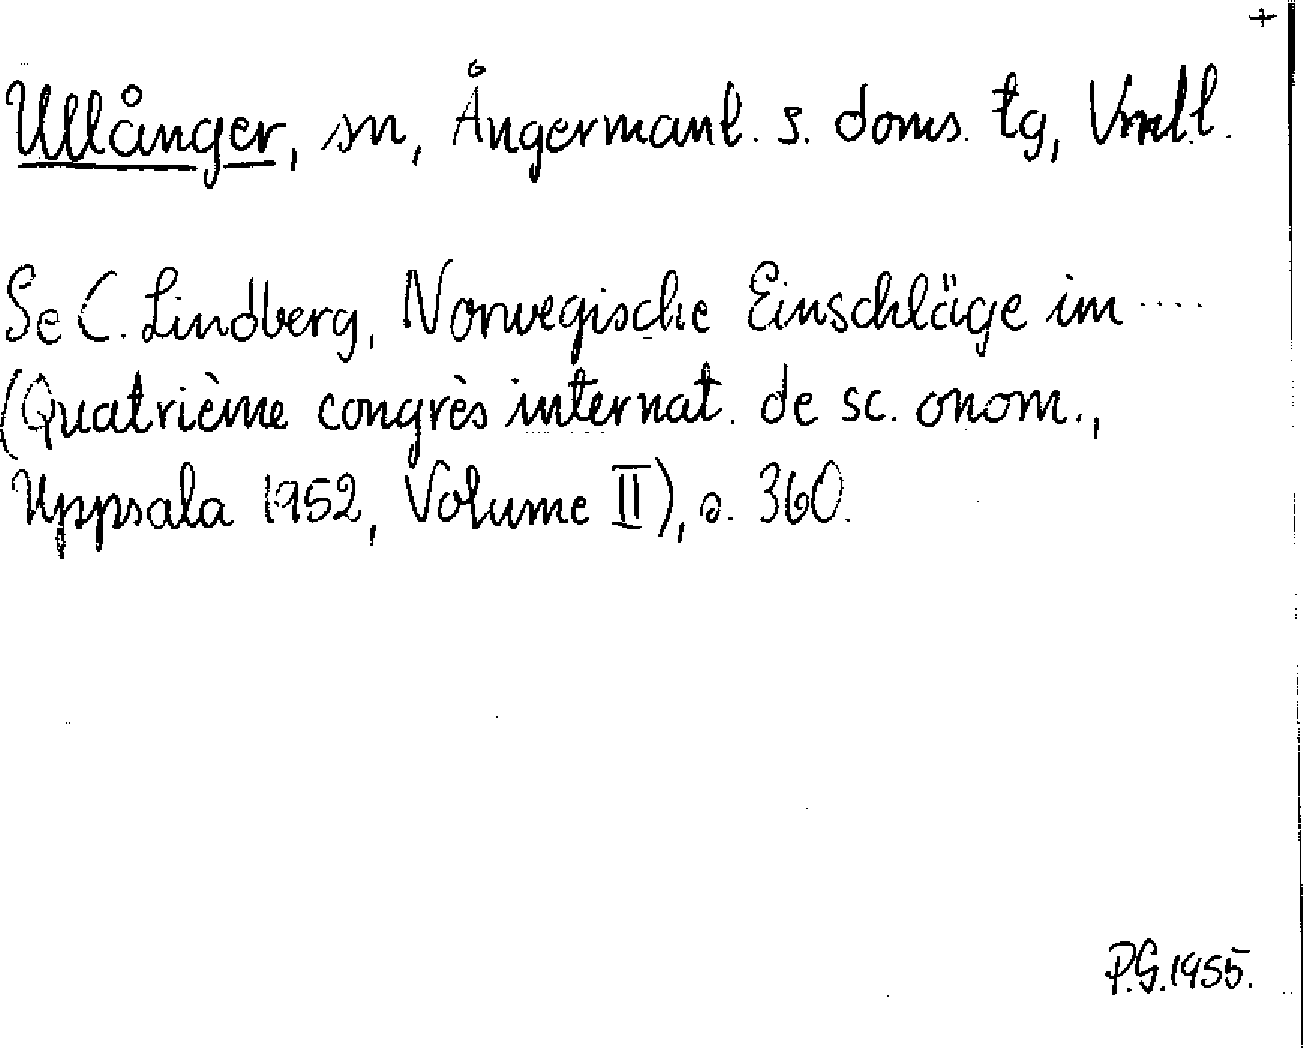 +
Ullånger, sn, Ångermanl. s. doms. tg, Vnrll.
Se C. Lindberg, Norwegische Einschläge im ....
(Quatrième congrès internat. de sc. onom.,
Uppsala 1952, Volume II), s. 360.
P.G. 1955.